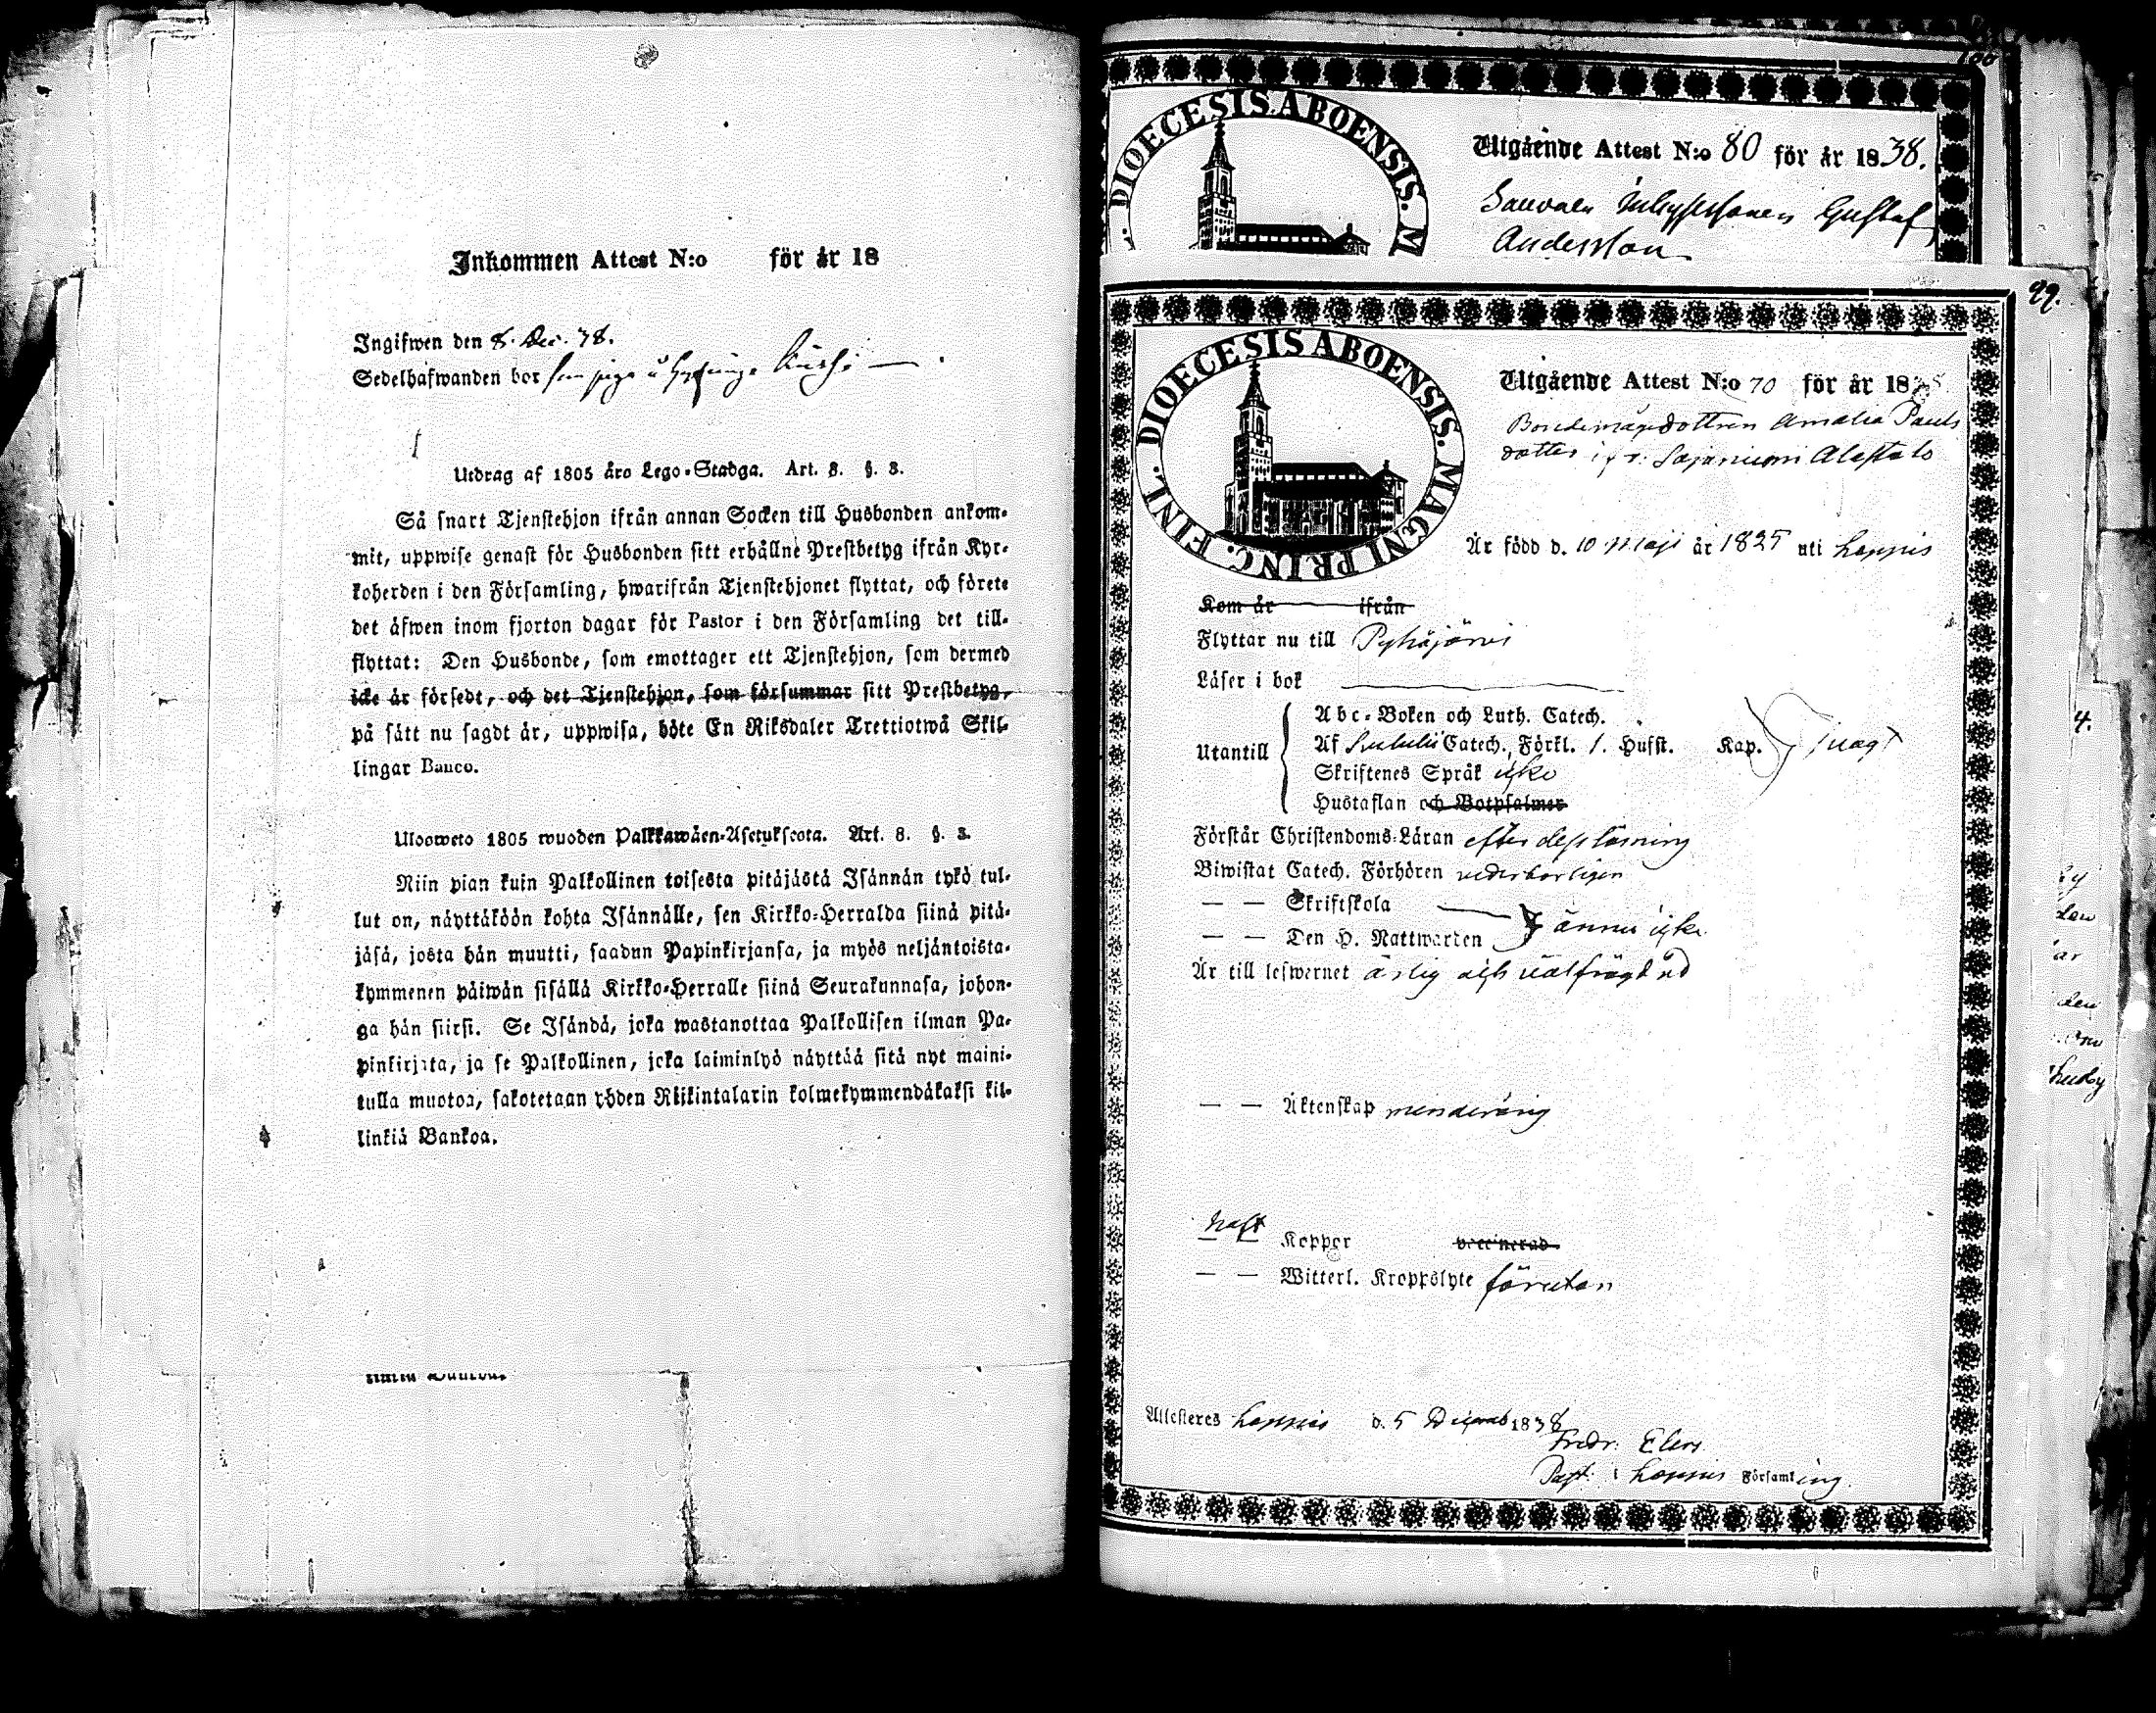 Inkommen Attest N:o för år 18
Ingifwen den 8. Dec. 38.
Sedelhafwanden bor
Utdrag af 1805 års Lego-Stadga. Art. 8. §. 3.
Så snart Tjenstehjon ifrån annan Socken till Husbonden ankom-
mit, uppwise genast för Husbonden sitt erhållne Prestbetyg ifrån Kyr-
koherden i den Församling, hwarifrån Tjenstehjonet flyttat, och förete
det äfwen inom fjorton dagar för Pastor i den Församling det till-
flyttat: Den Husbonde, som emottager ett Tjenstehjon, som dermed
icke är försedt, och det Tjenstehjon, som försummar sitt Prestbetyg,
på sätt nu sagdt är, uppwisa, böte En Riksdaler Trettiotwå Skil-
lingar Banco.
Ulosweto 1805 wuoden Palkkawäen-Asetuksesta. Art. 8. §. 3.
Niin pian kuin Palkollinen toisesta pitäjästä Isännän tykö tul-
lut on, näyttäköön kohta Isännälle, sen Kirkko-Herralda siinä pitä-
jäsä, josta hän muutti, saadun Papinkirjansa, ja myös neljäntoista-
kymmenen päiwän sisällä Kirkko-Herralle siinä Seurakunnasa, johon-
ga hän siirsi. Se Isändä, joka wastanottaa Palkollisen ilman Pa-
pinkirjata, ja se Palkollinen, joka laiminlyö näyttää sitä nyt maini-
tulla muotoa, sakotetaan yhden Riikintalarin kolmekymmendäkaksi kil-
linkiä Bankoa.
DIOECESIS ABOENSIS. M
Utgående Attest N:o 80 för år 1838.
Gustaf
Andersson
99.
DIOECESIS ABOENSIS. MAGNI PRINC. FINL.
Utgående Attest N:o 70 för år 1838.
Bondemågdottren Amalia Pauls
dotter ifr. Sajaniemi Alastalo
Är född d. 10 Maji år 1825 uti Loppis
Kom år ifrån
Flyttar nu till Pyhäjärvi
Läser i bok
Utantill
Abc-Boken och Luth. Catech.
Af Catech. Förkl. 1. Hufst. Kap. swagt
Skriftenes Språk icke
Hustaflan och Botpsalmer
Förstår Christendoms-Läran efter dess läsning
Biwistat Catech. Förhören vederbörligen
— — Skriftskola
— — Den H. Nattwarden ännu icke
Är till lefwernet ärlig och välfrägdad
— — Äktenskap minderårig
haft
— — Koppor vaccinerad
— — Witterl. Kroppslyte förutan
Attesteras Loppis d. 5 Decemb 1838
Fredr. Elers
Past. i Loppis Församling.
4.